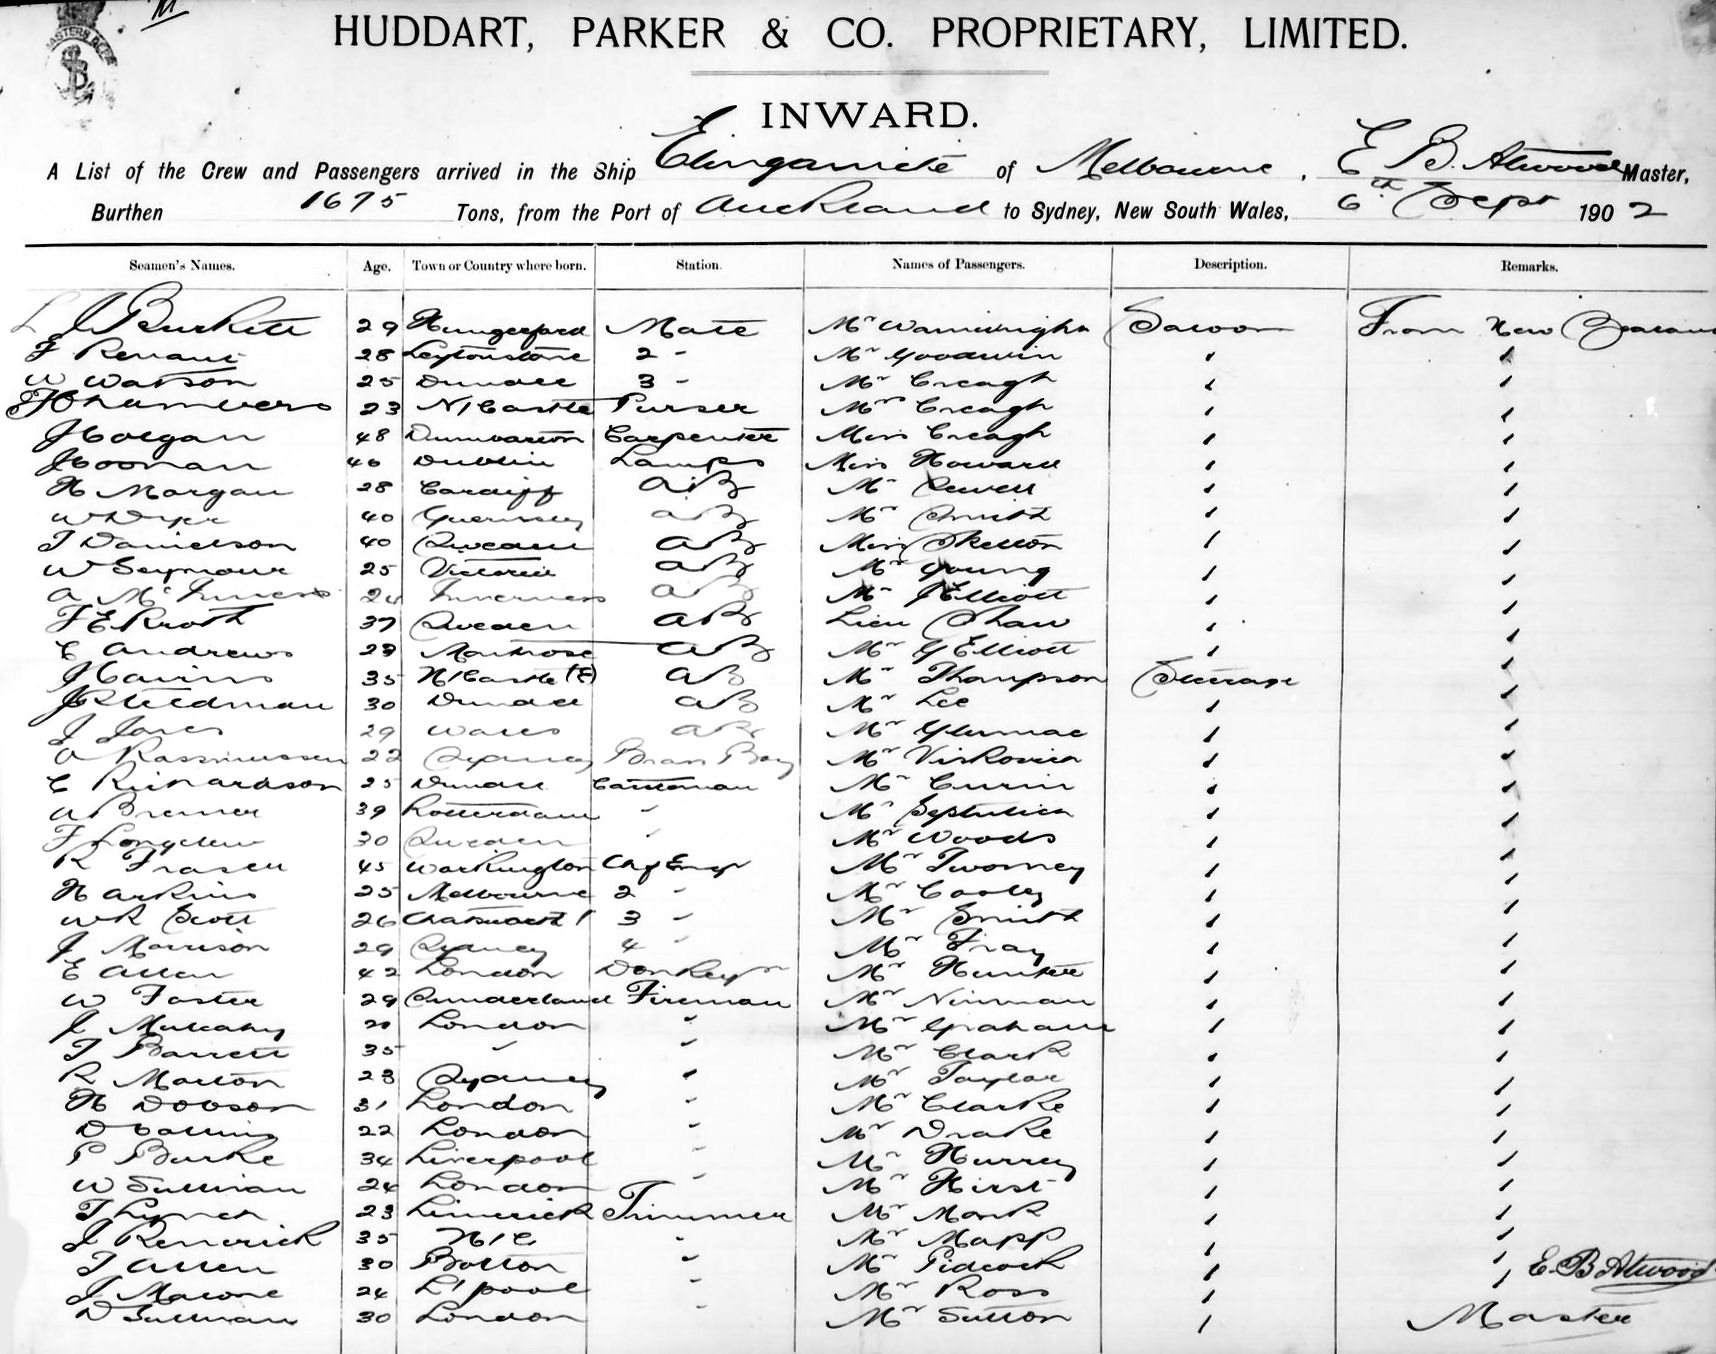 HUDDART, PARKER & CO. PROPRIETARY, LIMITED.
INWARD.
A List of the Crew and Passengers arrived in the Ship Elingamite of Melbourne, E B. Atwood Master,
Burthen 1675 Tons, from the Port of Auckland to Sydney, New South Wales, 6th Sept 1902
Seamen's Names. Age. Town or Country where born. Station. Names of Passengers. Description. Remarks.
L J Burkett 29 Hungerford Mate Mr Wainwright Saloon From New Zealand
F Renaut 28 Leytonstone 2 " Mr Goodwin "
W Watson 25 Dundee 3 " Mr Creagh "
F Chambers 23 N/Castle Purser Mrs Creagh "
J Holgan 48 Dumbarton Carpenter Miss Creagh "
J Noonan 46 Dublin Lamps Miss Howard "
H Morgan 28 Cardiff AB Mr Sewell "
W Dyer 40 Guernsey AB Mr Smith "
T Danielson 40 Sweden AB Miss Skelton "
W Seymour 25 Victoria AB Mr Young "
A McInness 24 Inverness AB Mr J Elliott "
F E Kroth 37 Sweden AB Lieu Shaw "
C Andrews 23 Montrose AB Mr G Elliott "
J Cairns 35 N/Castle (E) AB Mr Thompson Steerage "
J Steedman 30 Dundee AB Mr Lee "
J Jones 29 Wales AB Mr Glumac "
A Rasmussen 22 Sydney Brass Boy Mr Viskovich "
C Richardson 25 Dundee Cattleman Mr Curin "
A Bremer 39 Rotterdam " Mr "
F 30 Sweden " Mr Woods "
R Fraser 45 Workington Chf Engr Mr Twomey "
H Arkins 25 Melbourne 2 " Mr Cooley "
W R Scott 26 3 " Mr Smith "
J Morrison 29 Sydney 4 " Mr Fray "
E Allen 42 London Donkeyn Mr Hunter "
W Foster 29 Sunderland Fireman Mr Ninman "
J Mulcahy 20 London " Mr Graham "
T Barrett 35 " " Mr Clark "
R Morton 23 Sydney " Mr Taylor "
H Dobson 31 London " Mr Clarke "
D Collins 22 London " Mr Drake "
P Burke 34 Liverpool " Mr Hurrey "
W Sullivan 24 London Mr Hirst "
T Lynch 23 Limerick Trimmer Mr Monk "
J Kenerick 35 N/C " Mr Mapp "
T Allen 30 Bolton " Mr Pidcock " E. B Atwood
J Malone 24 L'pool " Mr Ross "
D Sullivan 30 London " Mr Sutton " Master